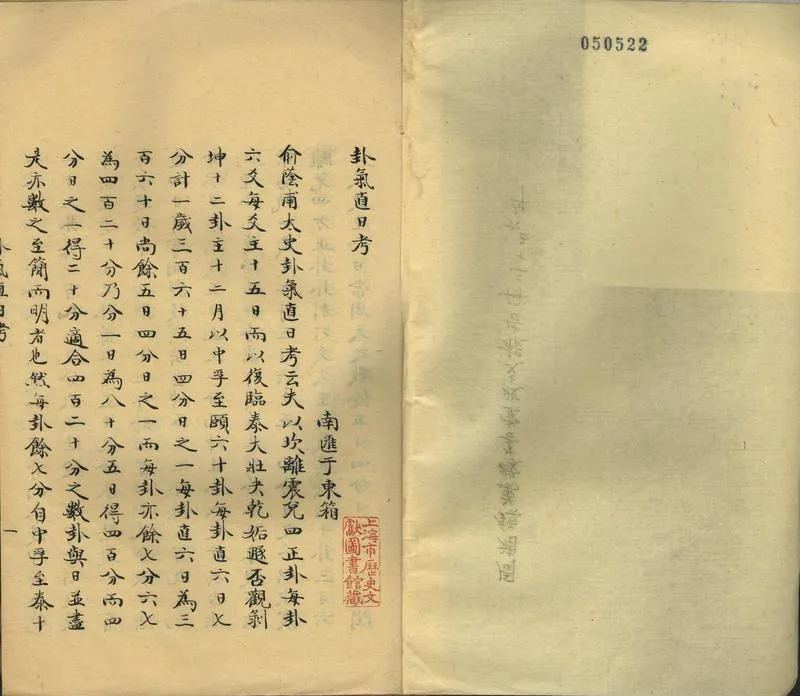 050522
卦氣直日考
南匯于東箱
俞蔭甫太史卦氣直日考云夫以坎離震兌四正卦每卦
六爻每爻主十五日而以復臨泰大壯夬乾姤遯否觀剝
坤十二卦主十二月以中孚至頤六十卦每卦直六日七
分計一歲三百六十五日四分日之一每卦直六日為三
百六十日尚餘五日四分日之一而每卦亦餘七分六七
為四百二十分乃分一日為八十分五日得四百分而四
分日之一得二十分適合四百二十分之數卦與日並盡
是亦數之至簡而明者也然每卦餘七分自中孚至泰十
上海市歷史文
獻圖書館藏
氣直日考
一